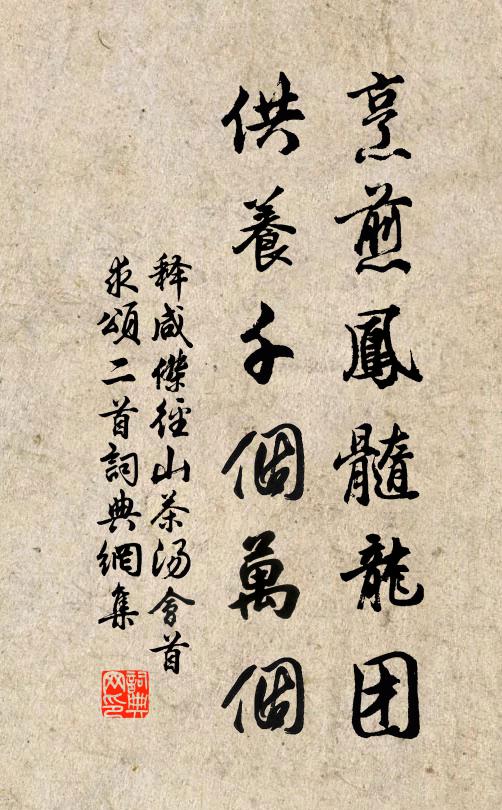 烹煎鳳髓龍团
供養千個萬個
释咸傑徑山茶汤會首
求頌二首詞典網集
詞典网印